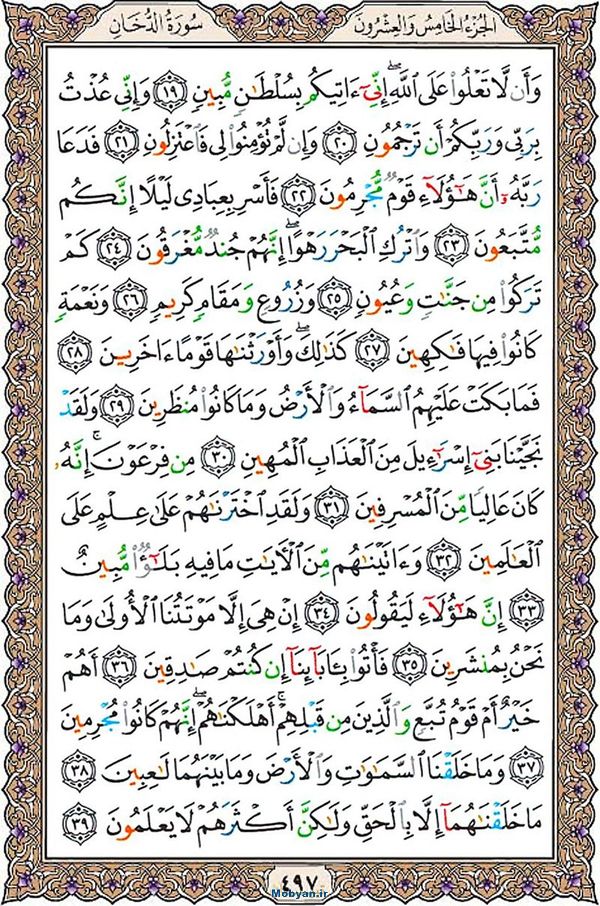 الجزء الخامس والعشرون
سورة الدخان
وَأَن لَّا تَعْلُوا۟ عَلَى ٱللَّهِ ۖ إِنِّىٓ ءَاتِيكُم بِسُلْطَـٰنٍ مُّبِينٍ ١٩ وَإِنِّى عُذْتُ
بِرَبِّى وَرَبِّكُمْ أَن تَرْجُمُونِ ٢٠ وَإِن لَّمْ تُؤْمِنُوا۟ لِى فَٱعْتَزِلُونِ ٢١ فَدَعَا
رَبَّهُۥٓ أَنَّ هَـٰٓؤُلَآءِ قَوْمٌ مُّجْرِمُونَ ٢٢ فَأَسْرِ بِعِبَادِى لَيْلًا إِنَّكُم
مُّتَّبَعُونَ ٢٣ وَٱتْرُكِ ٱلْبَحْرَ رَهْوًا ۖ إِنَّهُمْ جُندٌ مُّغْرَقُونَ ٢٤ كَمْ
تَرَكُوا۟ مِن جَنَّـٰتٍ وَعُيُونٍ ٢٥ وَزُرُوعٍ وَمَقَامٍ كَرِيمٍ ٢٦ وَنَعْمَةٍ
كَانُوا۟ فِيهَا فَـٰكِهِينَ ٢٧ كَذَٰلِكَ ۖ وَأَوْرَثْنَـٰهَا قَوْمًا ءَاخَرِينَ ٢٨
فَمَا بَكَتْ عَلَيْهِمُ ٱلسَّمَآءُ وَٱلْأَرْضُ وَمَا كَانُوا۟ مُنظَرِينَ ٢٩ وَلَقَدْ
نَجَّيْنَا بَنِىٓ إِسْرَٰٓءِيلَ مِنَ ٱلْعَذَابِ ٱلْمُهِينِ ٣٠ مِن فِرْعَوْنَ ۚ إِنَّهُۥ
كَانَ عَالِيًا مِّنَ ٱلْمُسْرِفِينَ ٣١ وَلَقَدِ ٱخْتَرْنَـٰهُمْ عَلَىٰ عِلْمٍ عَلَى
ٱلْعَـٰلَمِينَ ٣٢ وَءَاتَيْنَـٰهُم مِّنَ ٱلْـَٔايَـٰتِ مَا فِيهِ بَلَـٰٓؤٌا۟ مُّبِينٌ
٣٣ إِنَّ هَـٰٓؤُلَآءِ لَيَقُولُونَ ٣٤ إِنْ هِىَ إِلَّا مَوْتَتُنَا ٱلْأُولَىٰ وَمَا
نَحْنُ بِمُنشَرِينَ ٣٥ فَأْتُوا۟ بِـَٔابَآئِنَآ إِن كُنتُمْ صَـٰدِقِينَ ٣٦ أَهُمْ
خَيْرٌ أَمْ قَوْمُ تُبَّعٍ وَٱلَّذِينَ مِن قَبْلِهِمْ ۚ أَهْلَكْنَـٰهُمْ ۖ إِنَّهُمْ كَانُوا۟ مُجْرِمِينَ
٣٧ وَمَا خَلَقْنَا ٱلسَّمَـٰوَٰتِ وَٱلْأَرْضَ وَمَا بَيْنَهُمَا لَـٰعِبِينَ ٣٨
مَا خَلَقْنَـٰهُمَآ إِلَّا بِٱلْحَقِّ وَلَـٰكِنَّ أَكْثَرَهُمْ لَا يَعْلَمُونَ ٣٩
٤٩٧
Mobyan.ir